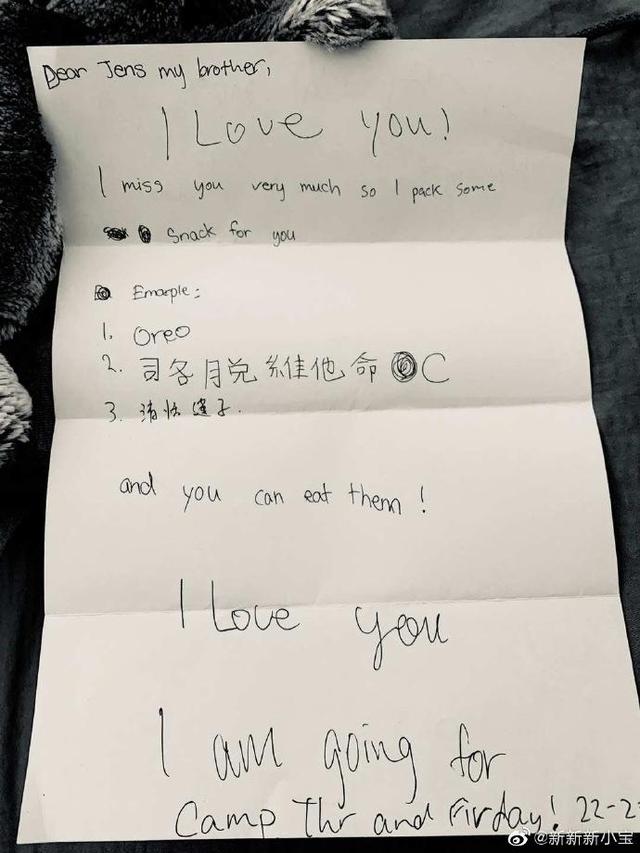 Dear Jens my brother,
I Love you!
I miss you very much so I pack some
Snack for you
Emarple:
1. Oreo
2. 司各月兑 維他命 C
3. 子.
and you can eat them!
I Love you
I am going for
Camp Thr and Firday! 22-2
@新新新小宝